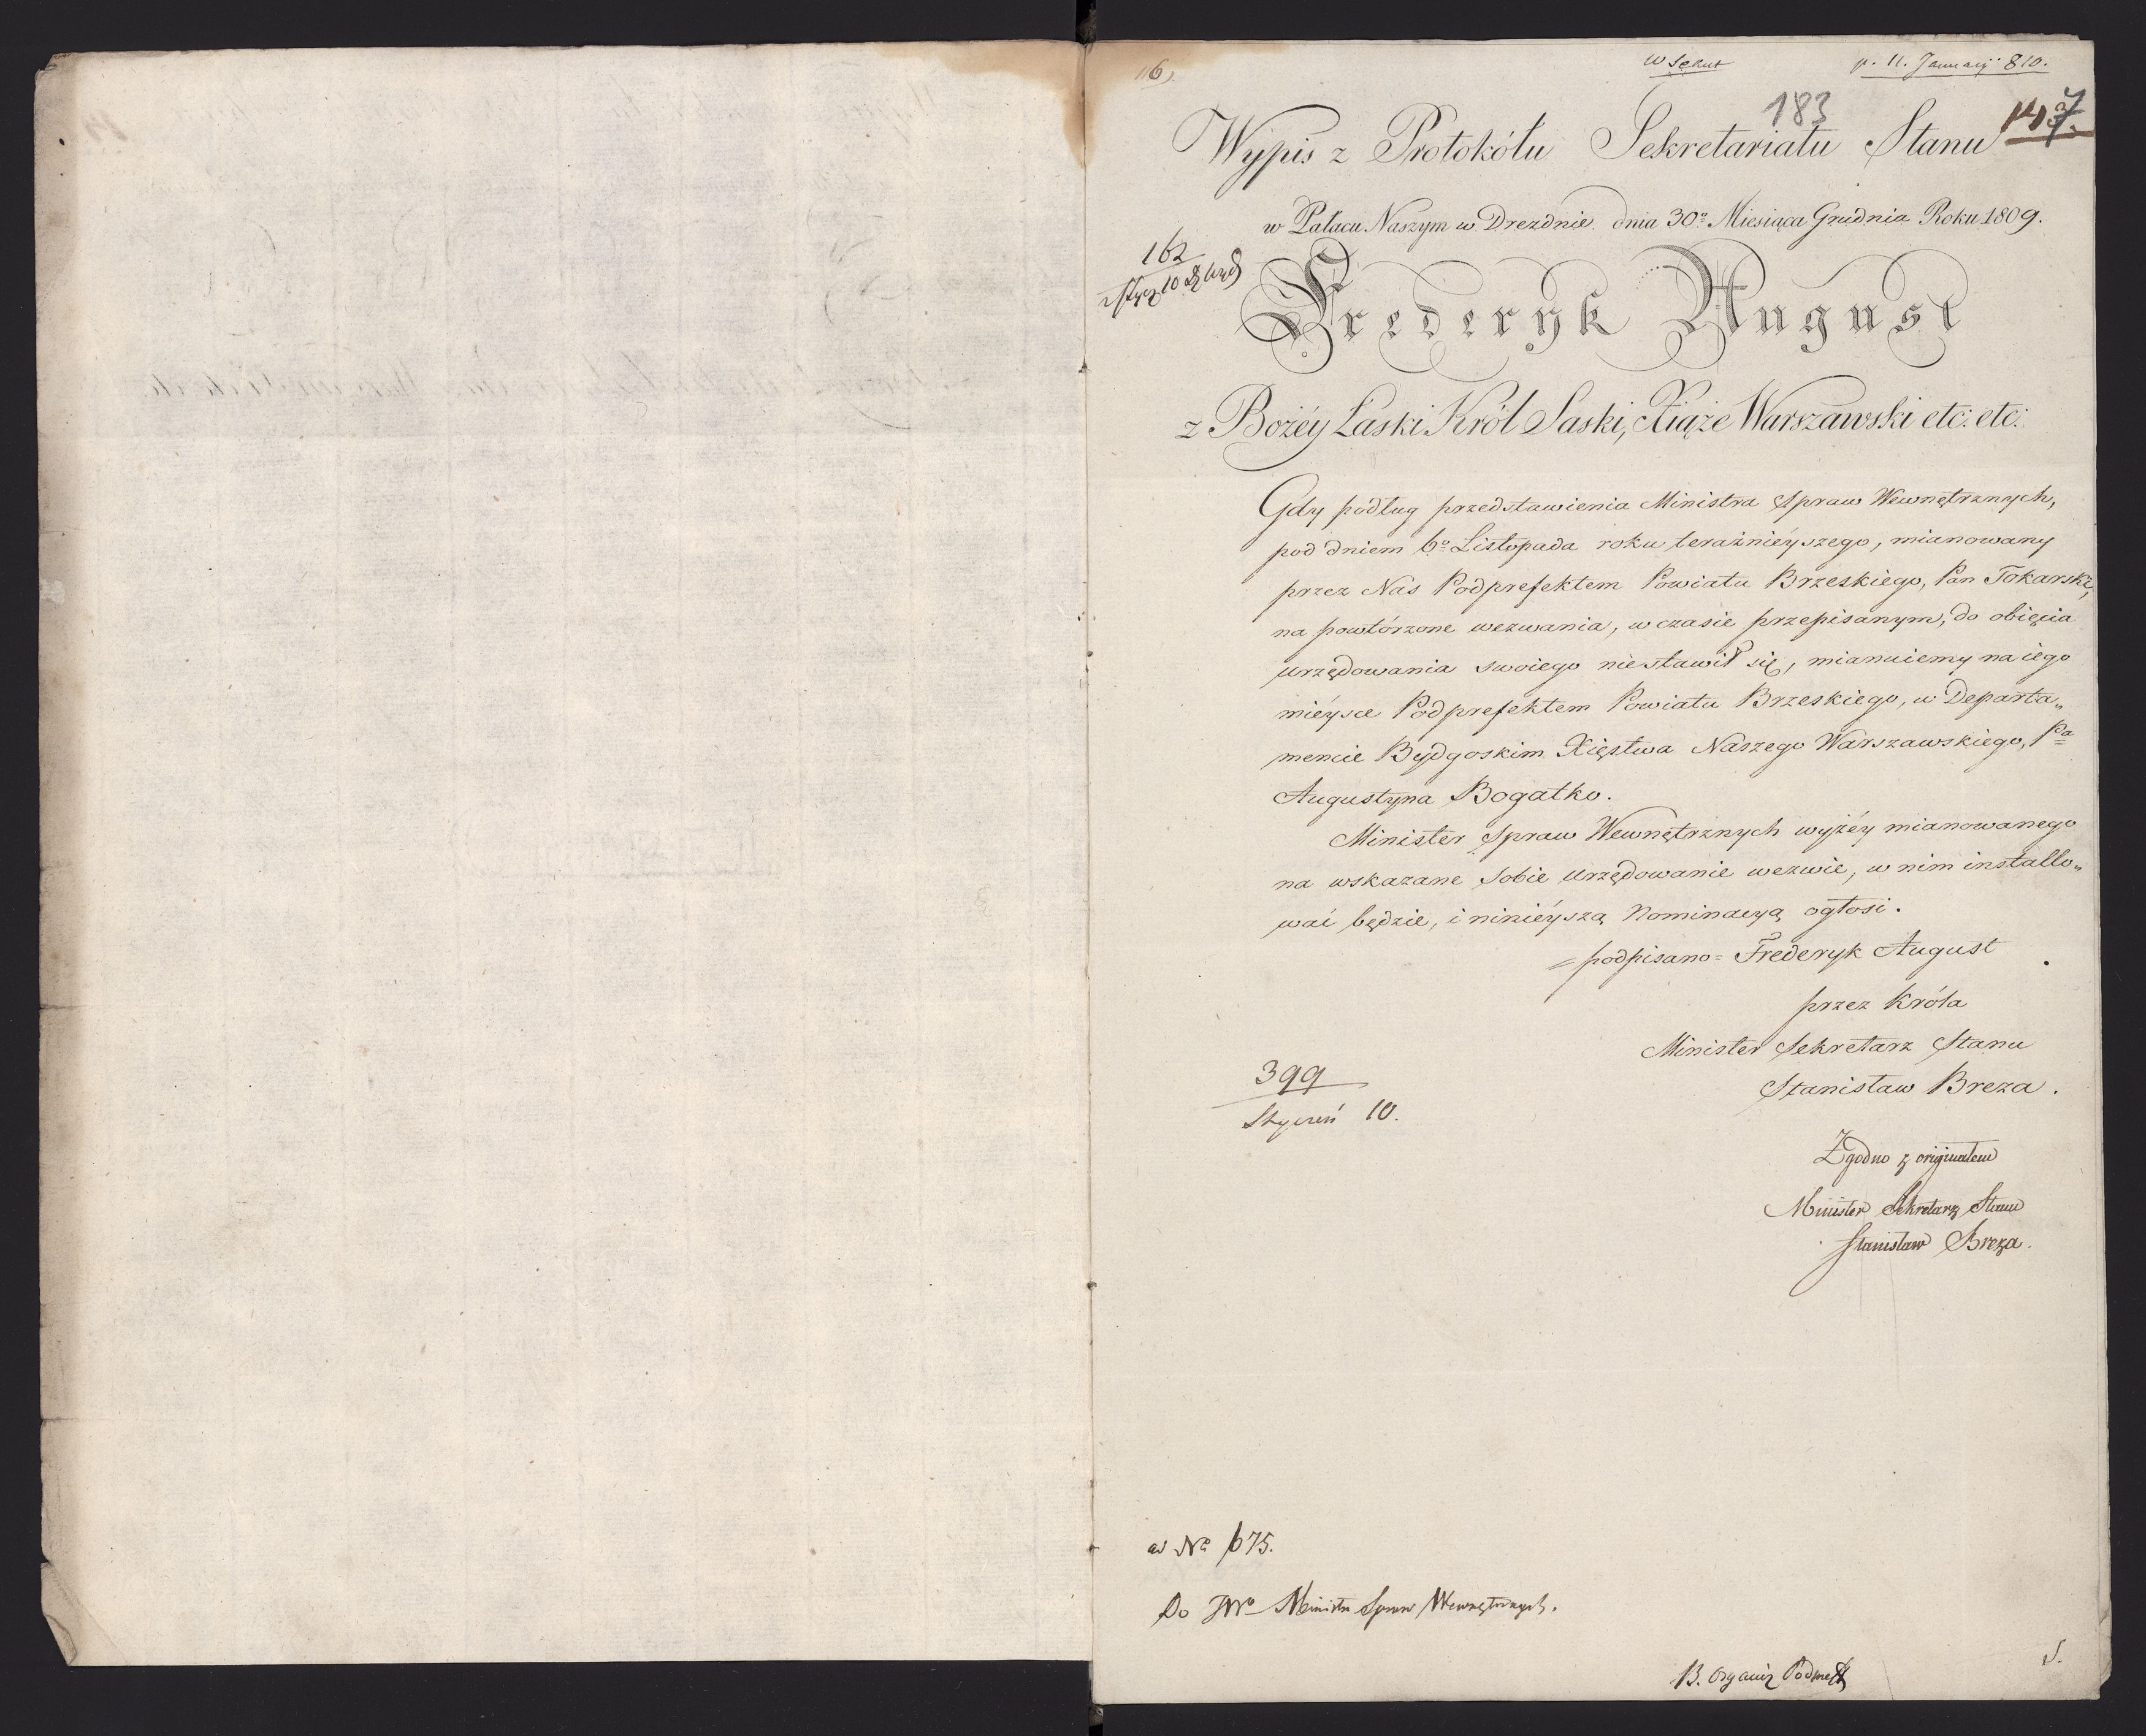 p. 11. Januarij 810.
183
Wypis z Protokółu Sekretariatu Stanu
w Pałacu Naszym w Dreznie dnia 30º Miesiąca Grudnia Roku 1809.
162
Frederyk August
z Bożéy Łaski Król Saski, Xiąże Warszawski etc: etc:
Gdy podług przedstawienia Ministra Spraw Wewnętrznych,
pod dniem 6º Listopada roku teraźnieyszego, mianowany
przez Nas Podprefektem Powiatu Brzeskiego, Pan Tokarski,
na powtórzone wezwania, w czasie przepisanym, do obięcia
urzędowania swoiego niestawił się, mianuiemy na iego
mieysce Podprefektem Powiatu Brzeskiego, w Departa„
mencie Bydgoskim Xięstwa Naszego Warszawskiego, Pª
Augustyna Bogatko.
Minister Spraw Wewnętrznych wyżéy mianowanego
na wskazane sobie urzędowanie wezwie, w nim installo„
wać będzie, i ninieyszą Nominacyą ogłosi.
= podpisano = Frederyk August
przez Króla
Minister Sekretarz Stanu
Stanisław Breza.
399
Styczeń 10.
Zgodno z originałem
Minister Sekretarz Stanu
Stanisław Breza.
ad Nº 675.
Do JWº Ministra Spraw Wewnętrznych.